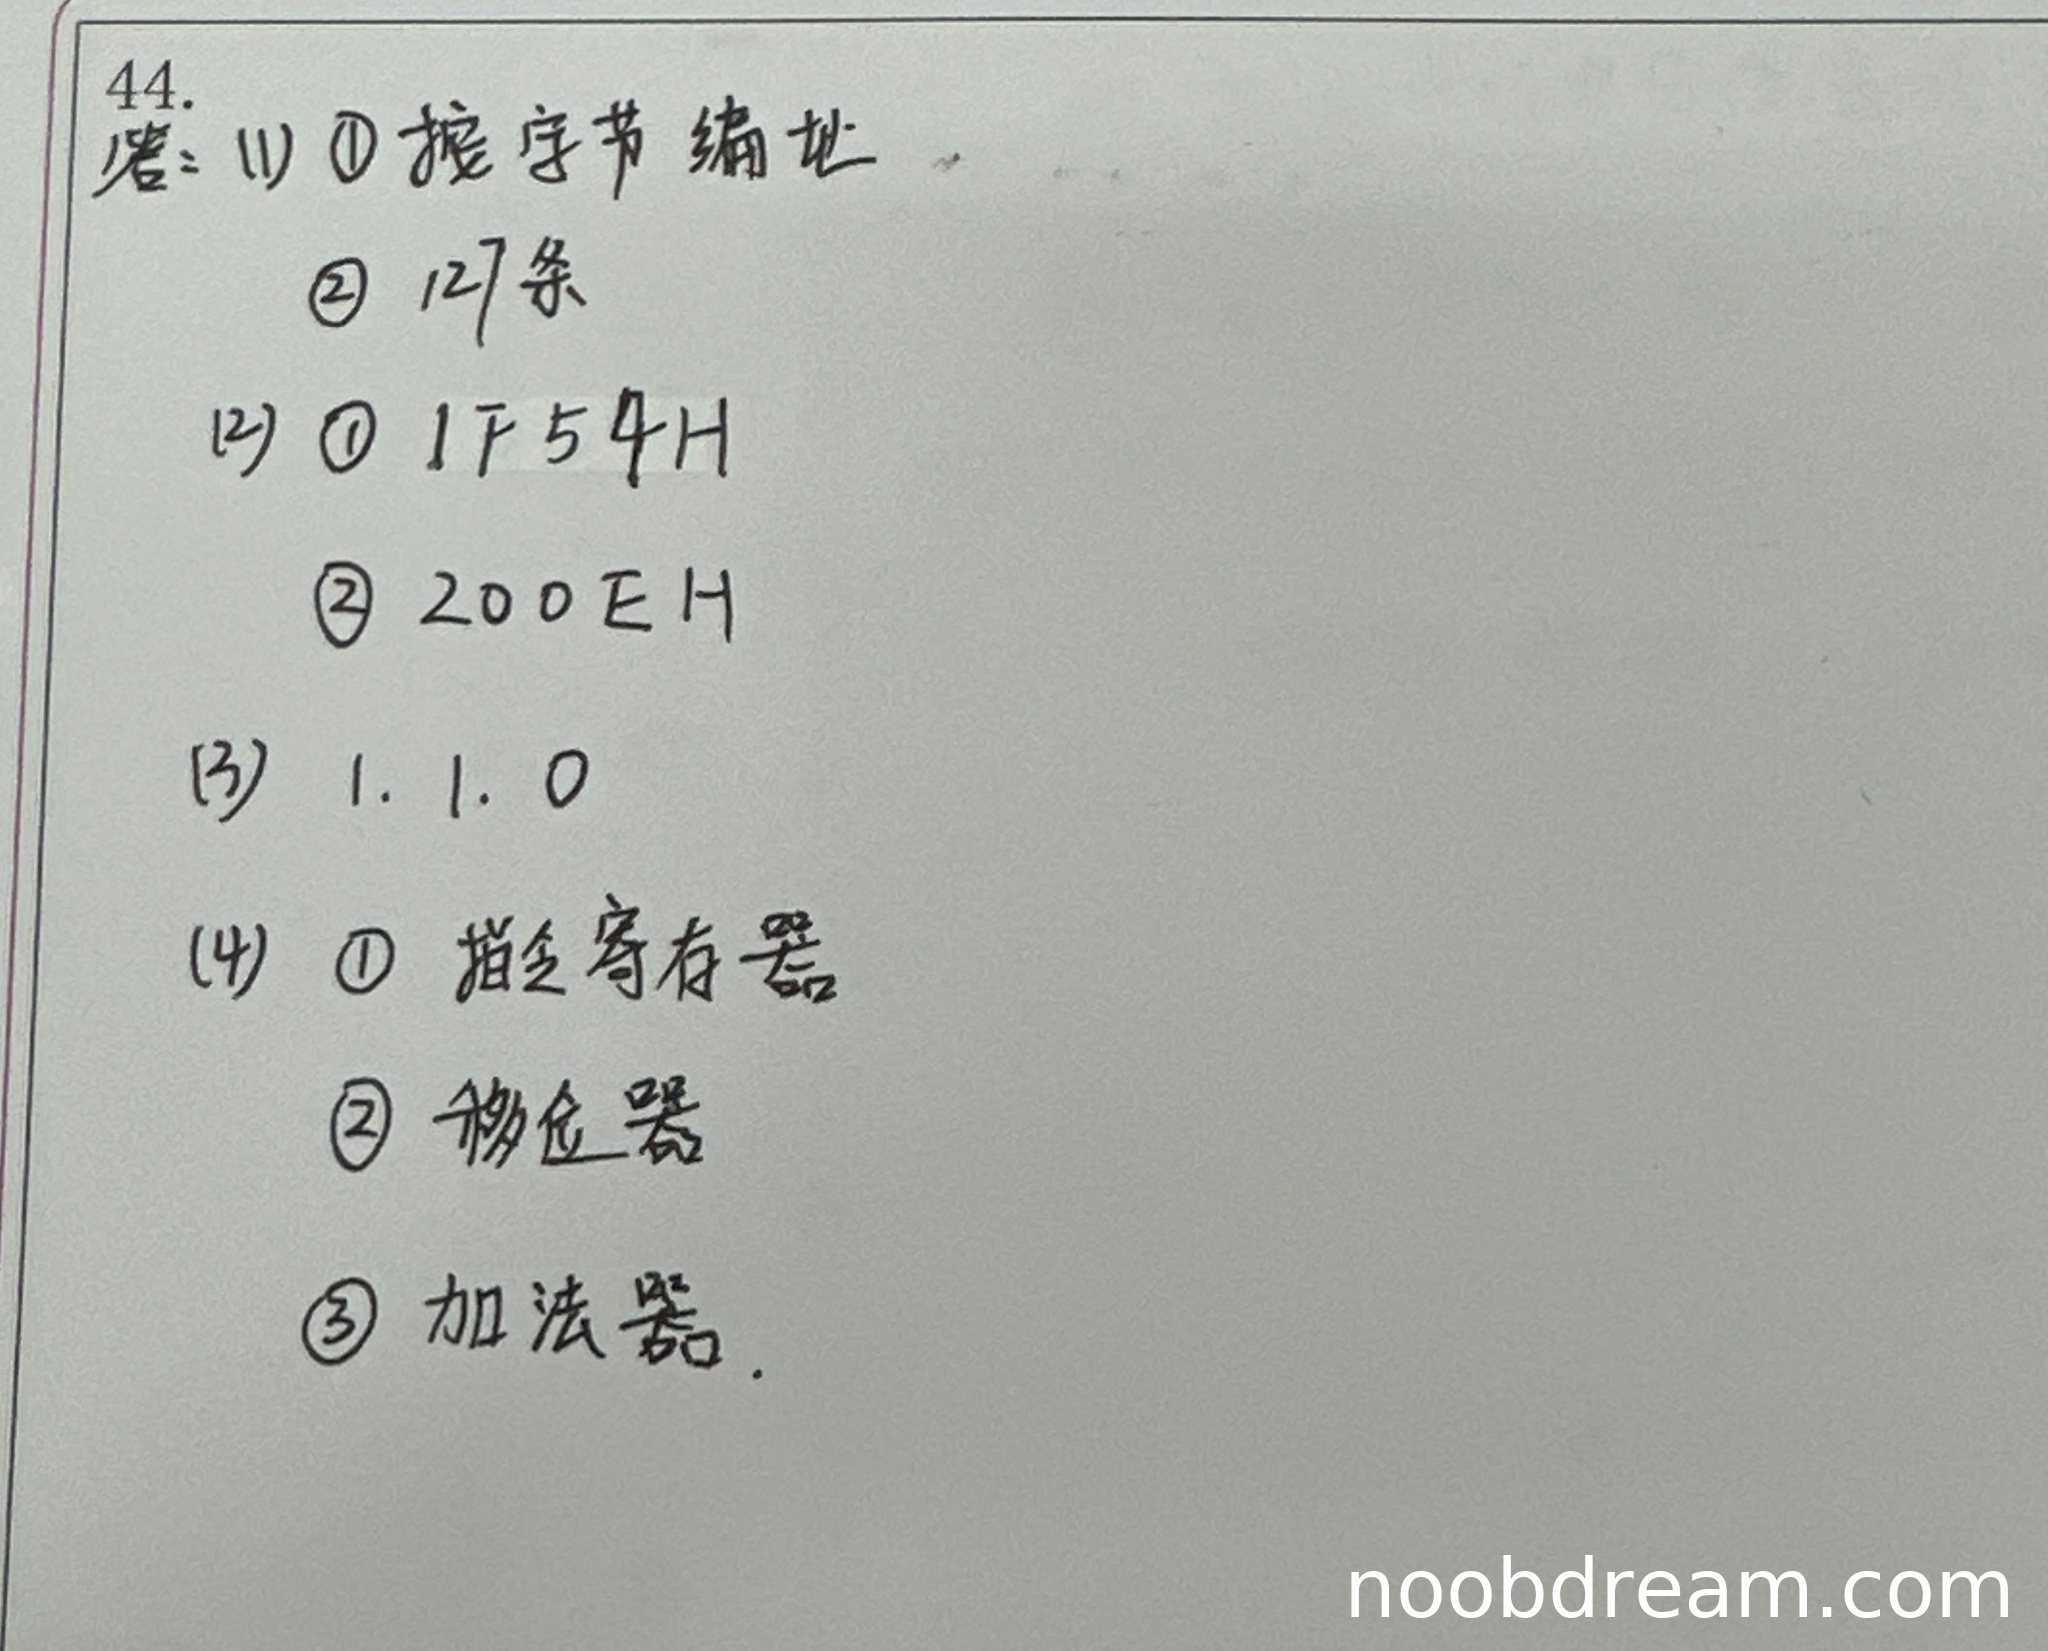 44.
答：(1) ① 按字节编址
② 127条
(2) ① 1F54H
② 200EH
(3) 1. 1. 0
(4) ① 指令寄存器
② 移位器
③ 加法器.
noobdream.com